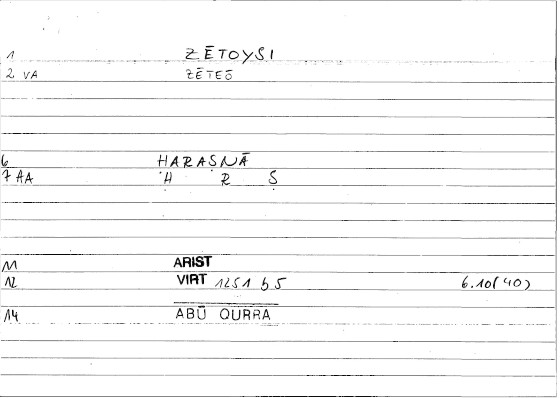 1 ZĒTOYSI
2 VA ZĒTEŌ
6 ḤARASNĀ
7 AA Ḥ R Ṣ
11 ARIST
12 VIRT 1251 b 5 6.10(40)
14 ABŪ QURRA